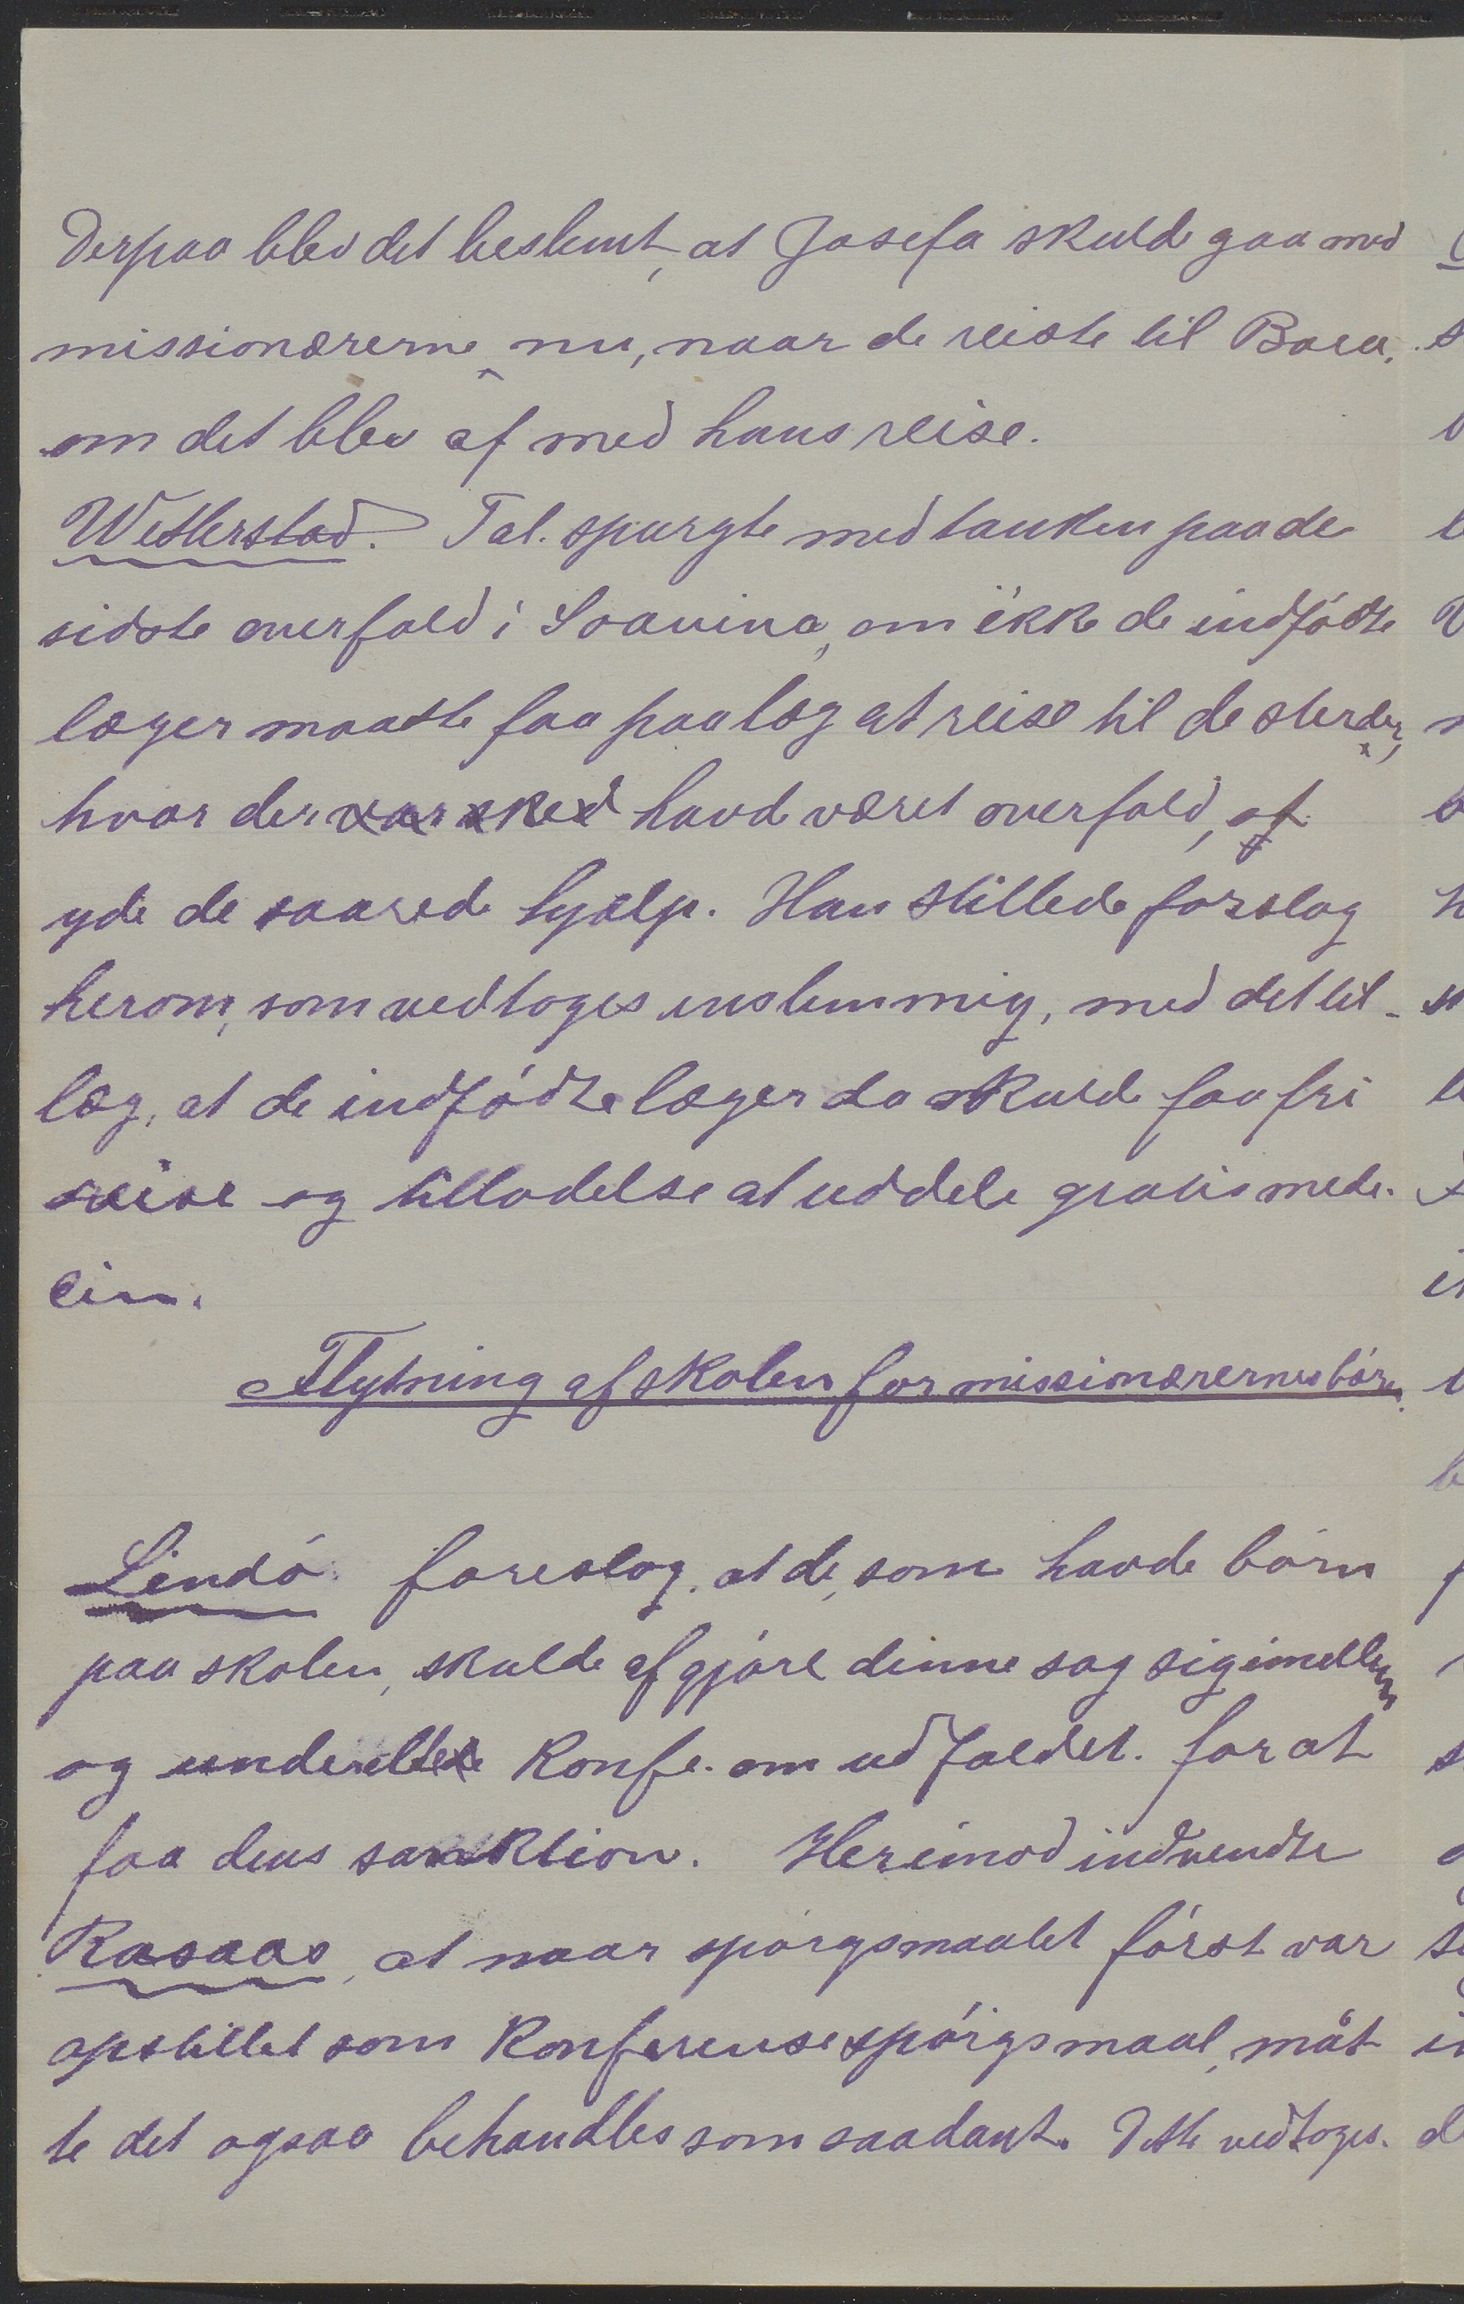 Derpaa blev det beslemt, at Josefa skulde gaa med
missionærerne nu, naar de reiste til Bara,
om det blev af med hans reise.
Wetterstad. Tal. spurgte med tanken paa de
sidste overfald i Soavina, om ikke de indfødte
læger maatte faa paalæg at reise til de steder,
hvor der var sked havde været overfald, at
yde de saarede hjælp. Han stillede forslag
herom, som vedtoges enstemmig, med det til-
læg, at de indfødte læger da skulde faa fri
reise og tilladelse at uddele gratis medi-
cin.
Flytning af skolen for missionærernes børn.
Lindø foreslog, at de, som havde børn
paa skolen, skulde afgjøre denne sag sigimellem
og underrette Konfr. om udfaldet for at
faa dens sanktion. Herimod indvendte
Rosaas, at naar spørgsmaalet først var
opstillet som Konferensespørgsmaal, måt
te det ogsaa behandles som saadant. Dette vedtoges.